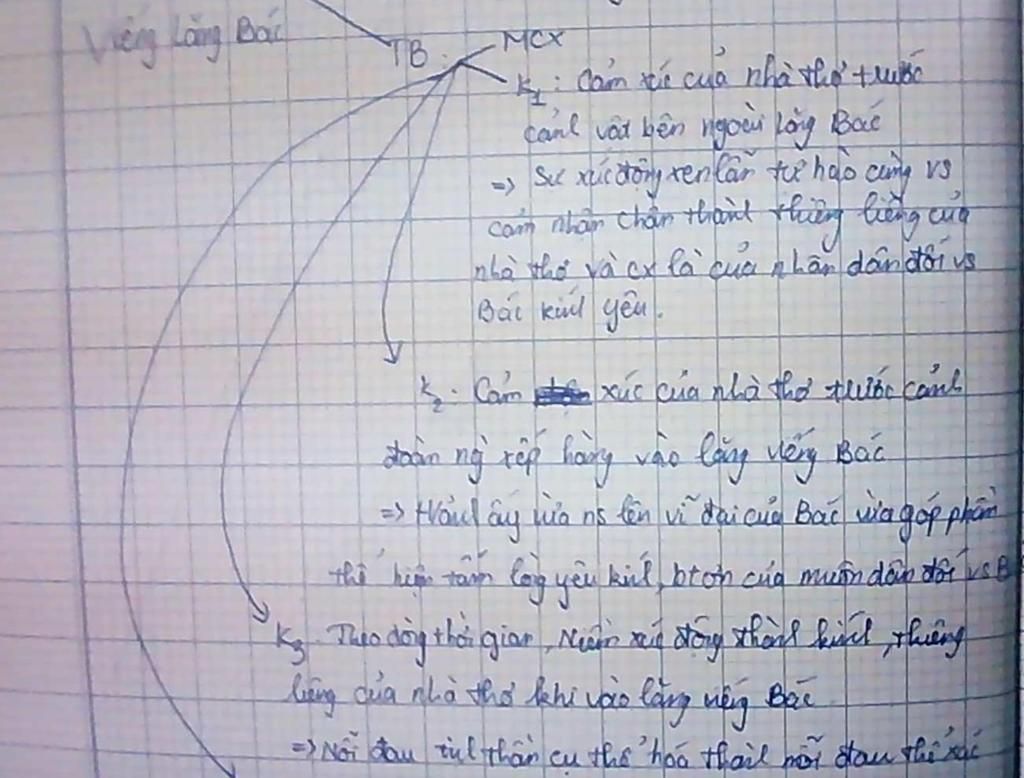 Viếng Lăng Bác
TB : MCX
K1 : Cảm xúc của nhà thơ trước
cảnh vật bên ngoài lăng Bác
=> Sự xúc động xen lẫn tự hào cùng vs
cảm nhận chân thành thiêng liêng của
nhà thơ và cx là của nhân dân đối vs
Bác kính yêu.
K2 : Cảm xúc của nhà thơ trước cảnh
đoàn ng xếp hàng vào lăng viếng Bác
=> H/ảnh ấy vừa ns lên vĩ đại của Bác vừa góp phần
thể hiện tấm lòng yêu kính, btơn của muôn dân đối vs B
K3 . Theo dòng thời gian, Niềm xúc động thành kính, thiêng
liêng của nhà thơ khi vào lăng viếng Bác
=> Nỗi đau tinh thần cụ thể hoá thành nỗi đau thể xác